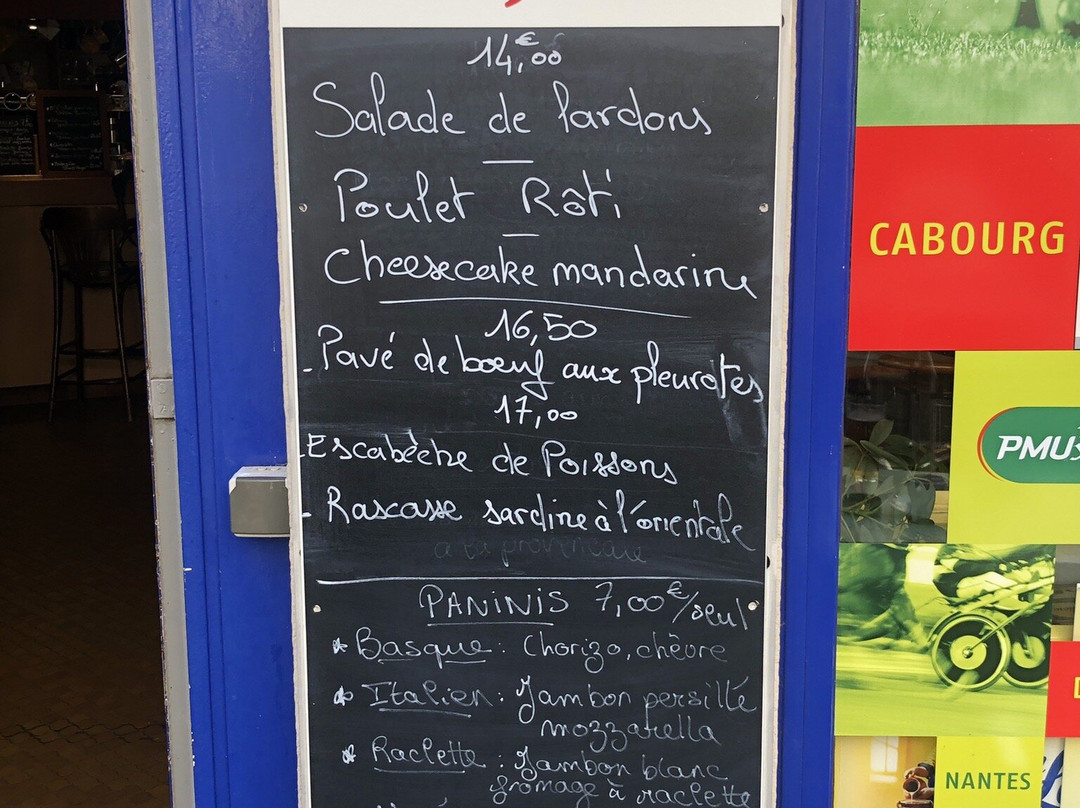 14,00€
Salade de lardons
Poulet Rôti
Cheesecake mandarine
16,50
- Pavé de boeuf aux pleurotes
17,00
- Escabèche de Poissons
- Rascasse sardine à l'orientale
a la provencale
PANINIS 7,00€/seul
* Basque : Chorizo, chèvre
* Italien : Jambon persillé
mozzarella
* Raclette : Jambon blanc
fromage à raclette
CABOURG
PMU
NANTES